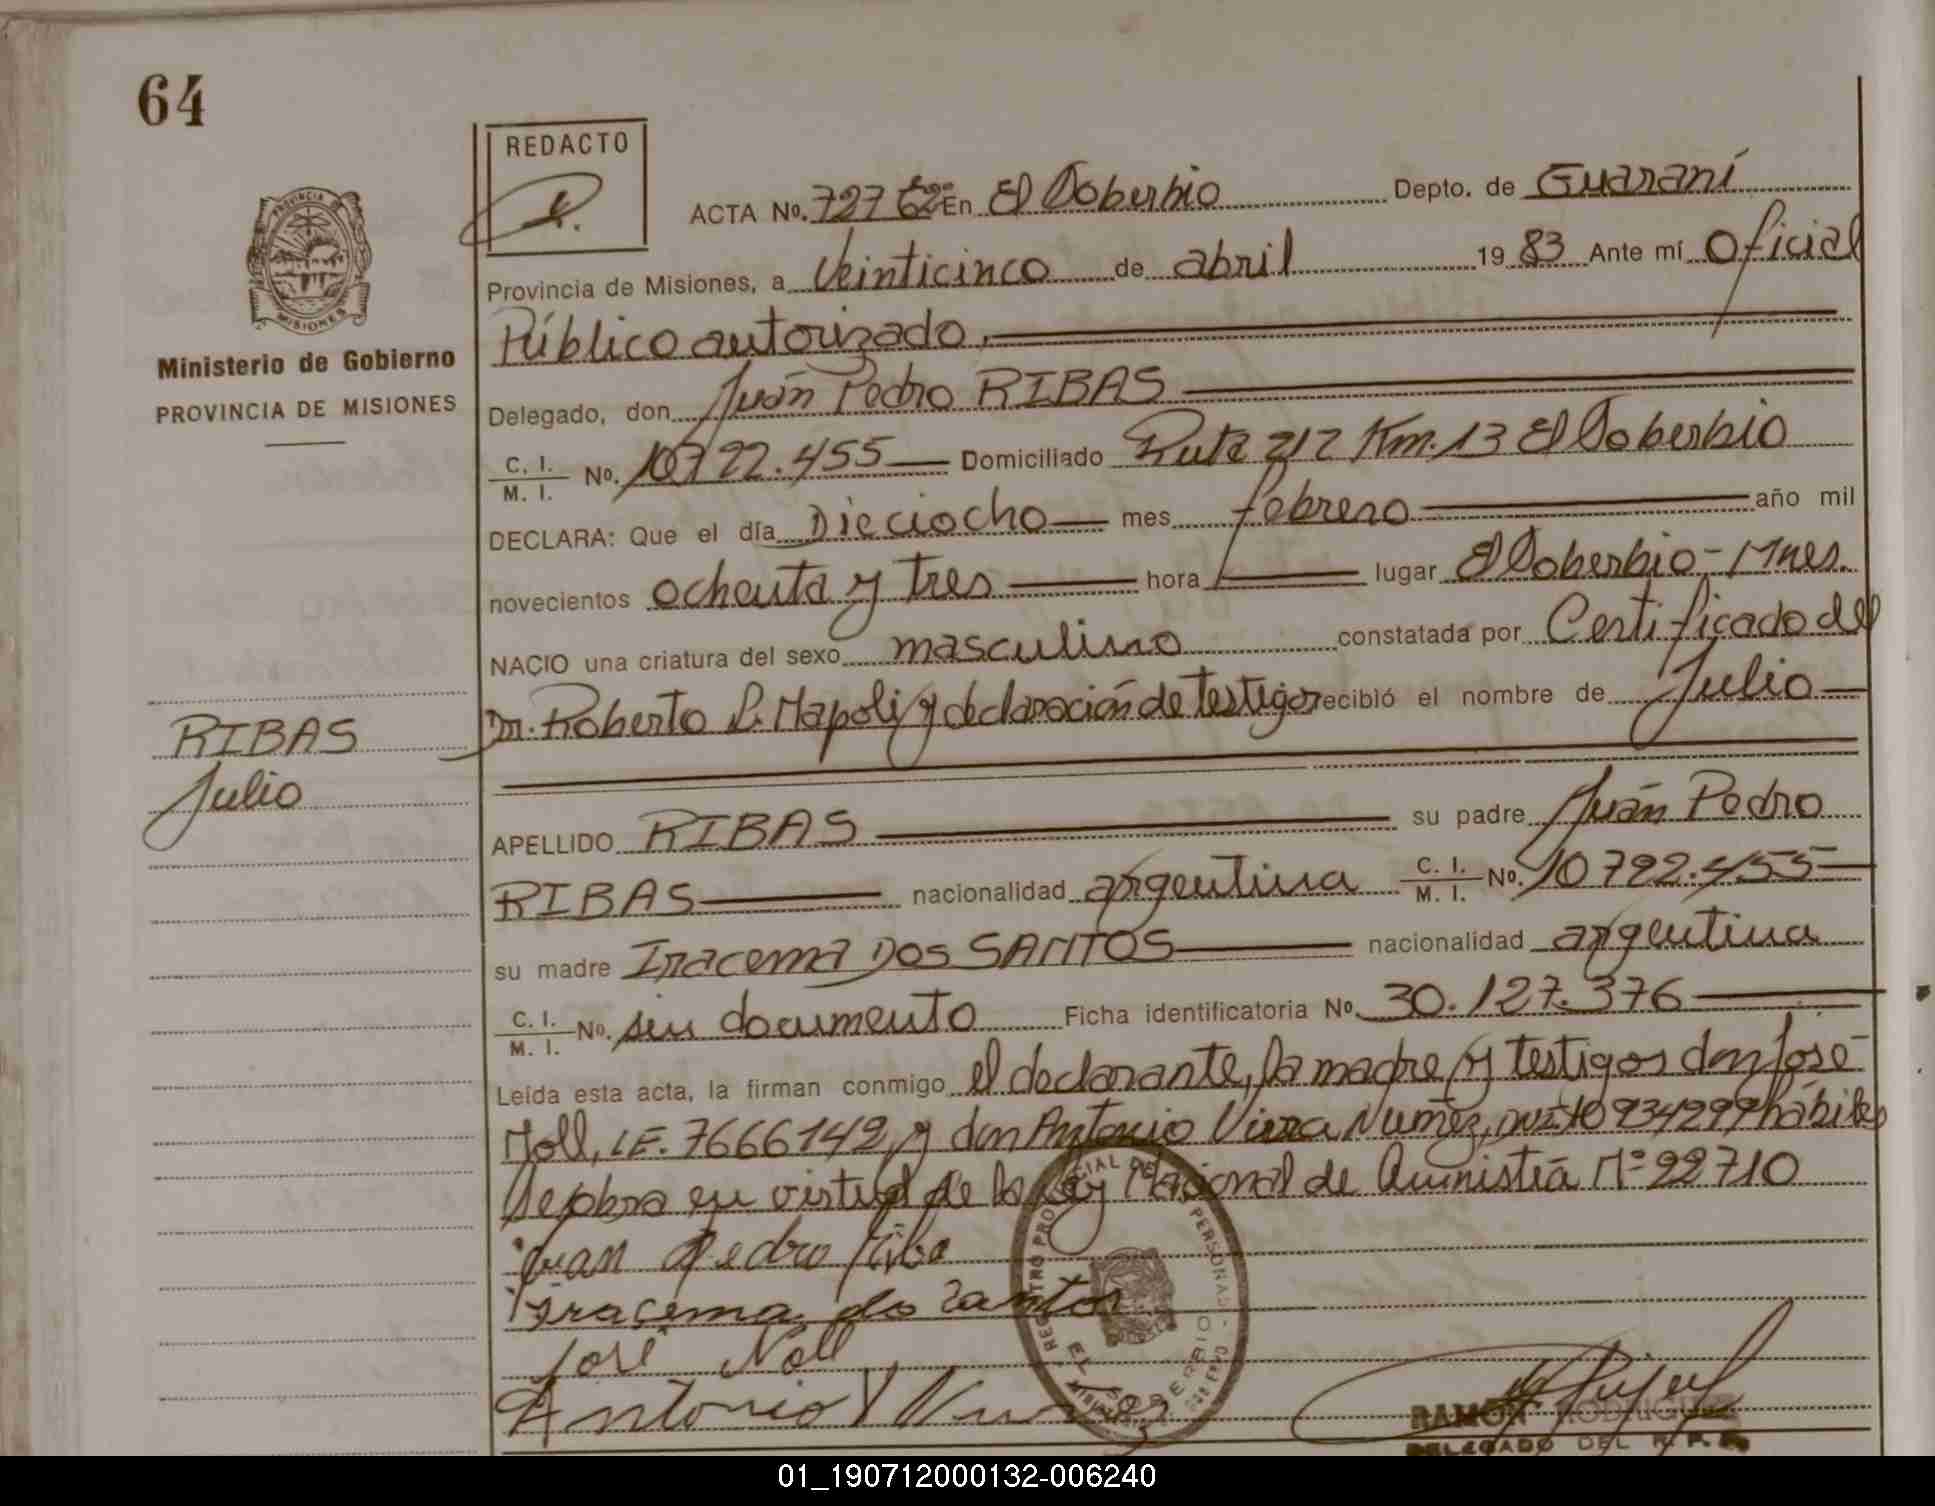 64
REDACTO
ACTA No. 727 En El Soberbio Depto. de Guaraní
Provincia de Misiones, a Veinticinco de abril 1983 Ante mí Oficial
Público autorizado.
Delegado, don Juán Pedro RIBAS
C. I. / M. I. No. 10722.455 Domiciliado Ruta 212 Km. 13 El Soberbio
DECLARA: Que el día Dieciocho mes febrero año mil
novecientos ochenta y tres hora lugar El Soberbio - Mnes.
NACIO una criatura del sexo masculino constatada por Certificado del
Dr. Roberto L. Napoli y declaración de testigos recibió el nombre de Julio
APELLIDO RIBAS su padre Juán Pedro
RIBAS nacionalidad argentina C. I. / M. I. No. 10722.455
su madre Iracema DOS SANTOS nacionalidad argentina
C. I. / M. I. No. sin documento Ficha identificatoria No. 30.127.376
Leída esta acta, la firman conmigo el declarante, la madre y testigos don José
Noll, LE. 7666142, y don Antonio Viera Nuñez, DNI 10934299 hábiles
Se labra en virtud de la Ley Nacional de Amnistía Nº 22710
Juan Pedro Riba
Iracema do Santos
José Noll
Antonio V Nuñez
PROVINCIA DE
MISIONES
Ministerio de Gobierno
PROVINCIA DE MISIONES
RIBAS
Julio
EL SOBERBIO
RAMON RODRIGUEZ
DELEGADO DEL R. P. P.
01_190712000132-006240